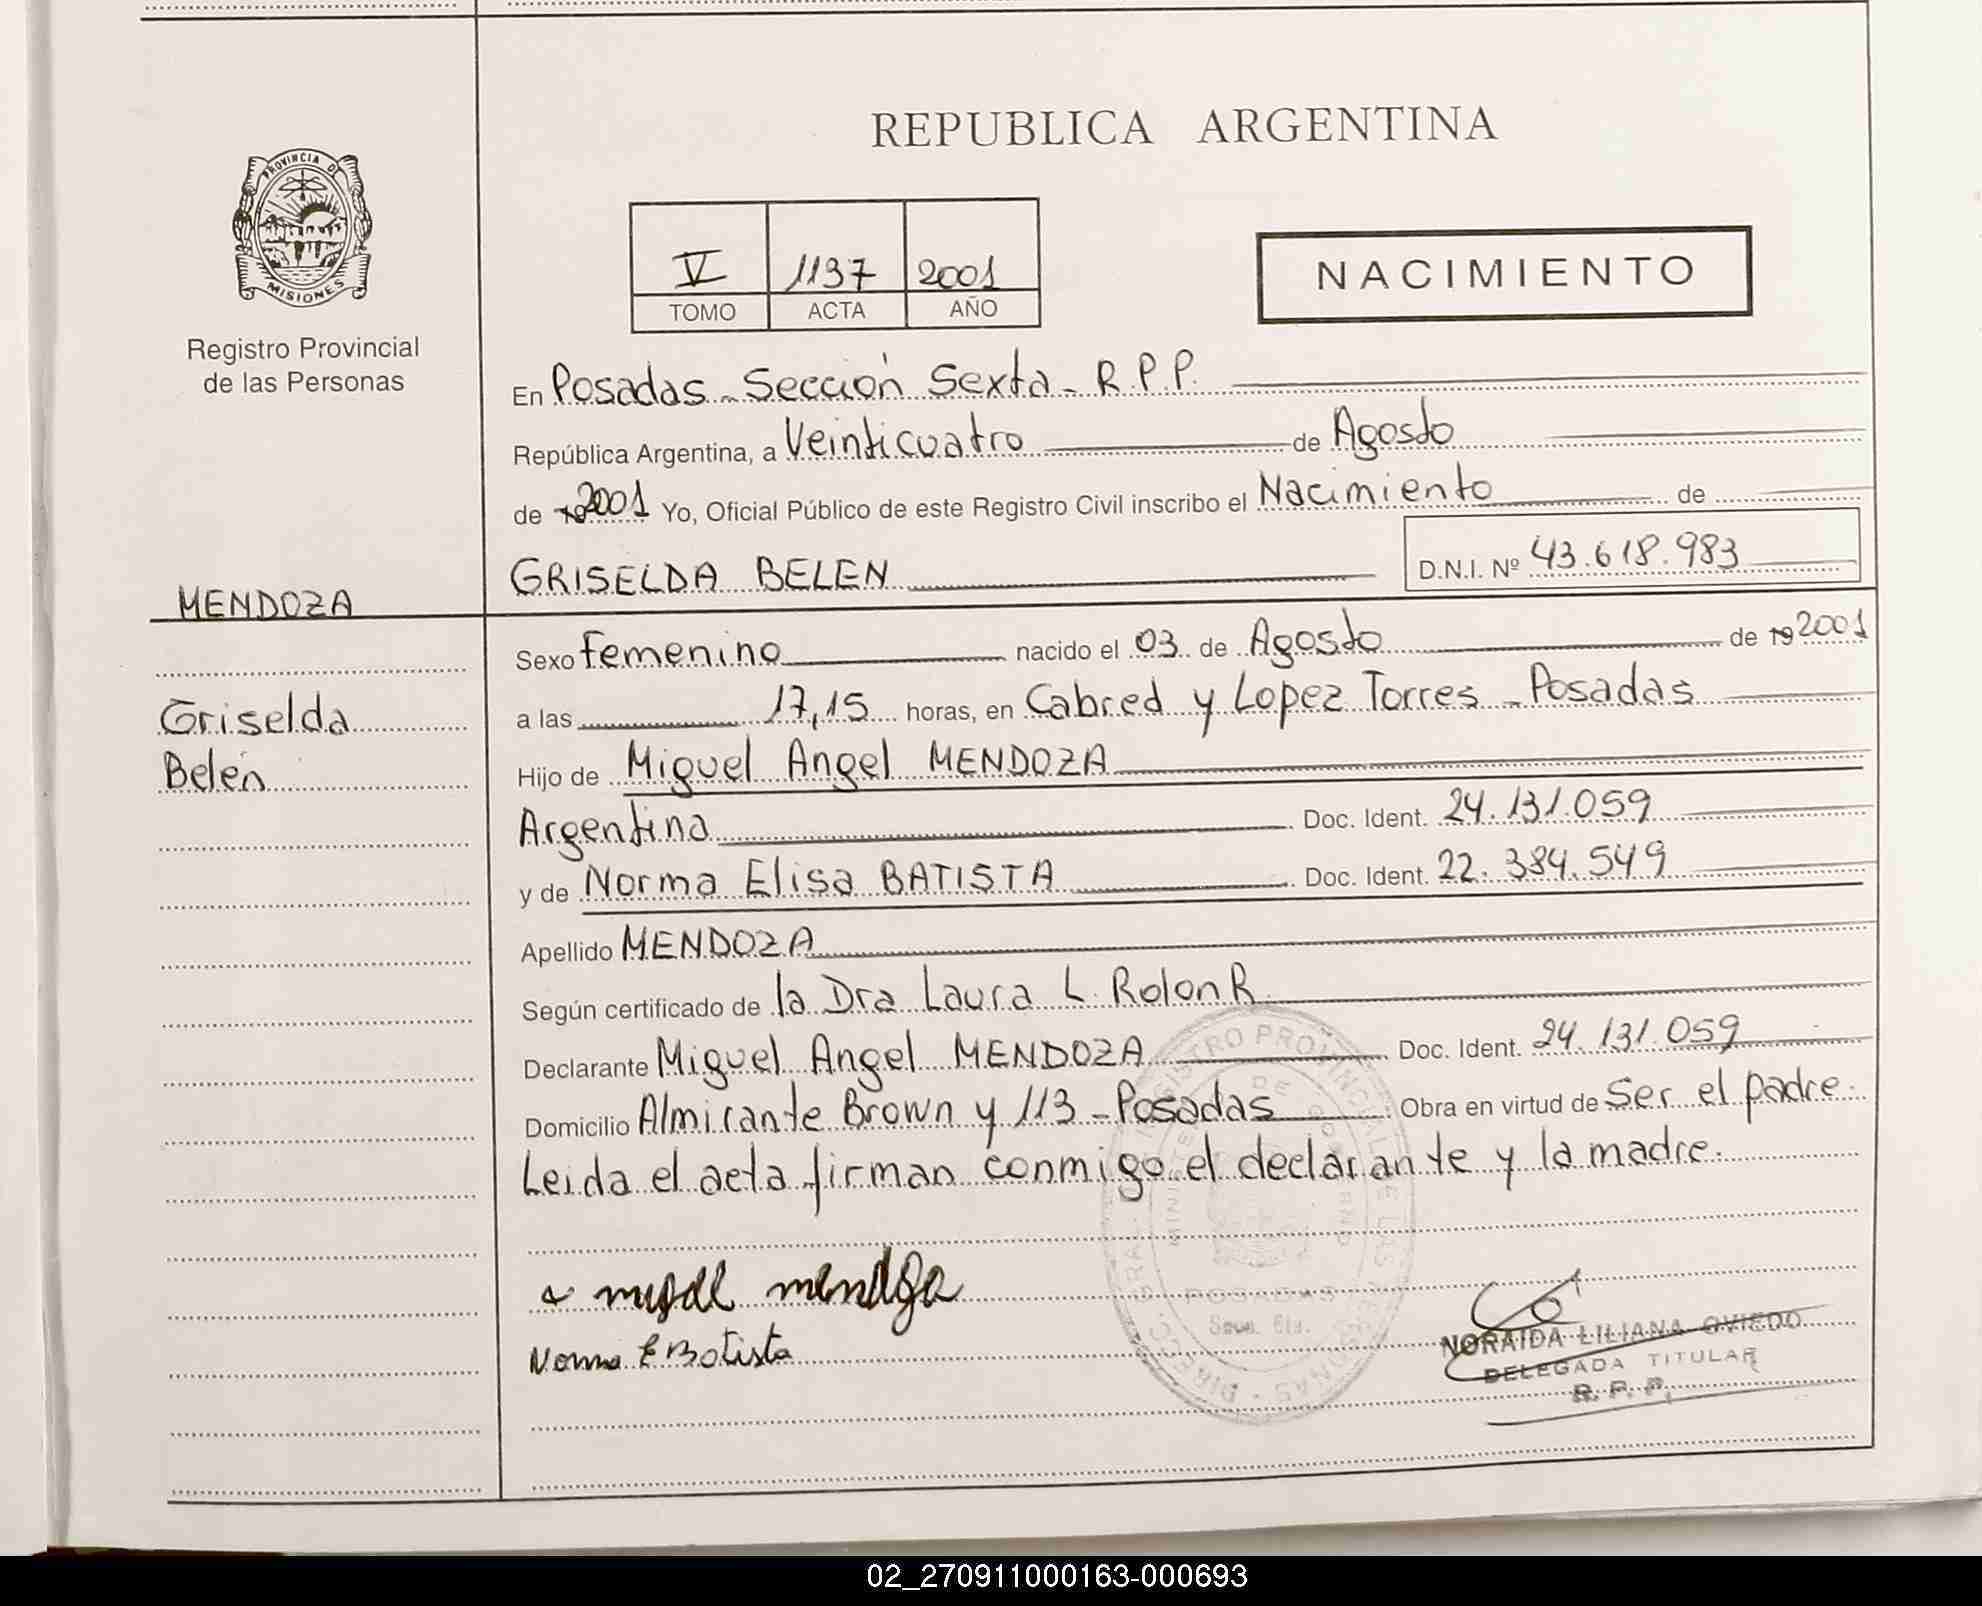 REPUBLICA ARGENTINA
PROVINCIA DE
MISIONES
Registro Provincial
de las Personas
V 1137 2001
TOMO ACTA AÑO
NACIMIENTO
En Posadas - Sección Sexta - R.P.P.
República Argentina, a Veinticuatro de Agosto
de 19 2001 Yo, Oficial Público de este Registro Civil inscribo el Nacimiento de
GRISELDA BELEN D.N.I. Nº 43.618.983
MENDOZA
Griselda
Belén
Sexo Femenino nacido el 03 de Agosto de 19 2001
a las 17,15 horas, en Cabred y Lopez Torres - Posadas
Hijo de Miguel Angel MENDOZA
Argentina Doc. Ident. 24.131.059
y de Norma Elisa BATISTA Doc. Ident. 22.384.549
Apellido MENDOZA
Según certificado de la Dra Laura L. Rolon R.
Declarante Miguel Angel MENDOZA Doc. Ident. 24.131.059
Domicilio Almirante Brown y 113 - Posadas Obra en virtud de Ser el padre.
Leida el acta firman conmigo el declarante y la madre.
migel mendoza
Norma E Batista
DIREC. GRAL. REGISTRO PROVINCIAL DE LAS PERSONAS
MINISTERIO DE GOBIERNO
POSADAS
Secc. 6ta.
NORAIDA LILIANA OVIEDO
DELEGADA TITULAR
R. P. P.
02_270911000163-000693